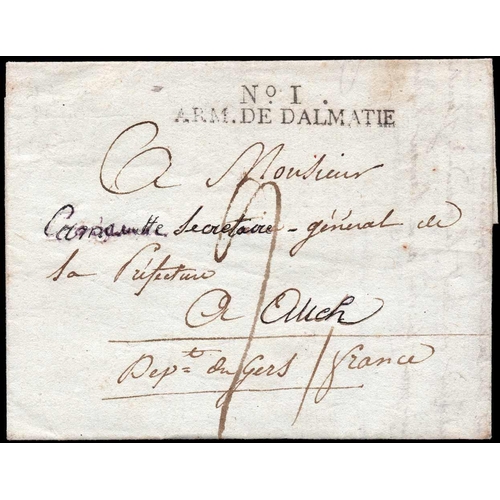 No. I.
ARM. DE DALMATIE
A Monsieur
secretaire - général de
la Préfecture
A Auch
Dept. du Gers / france